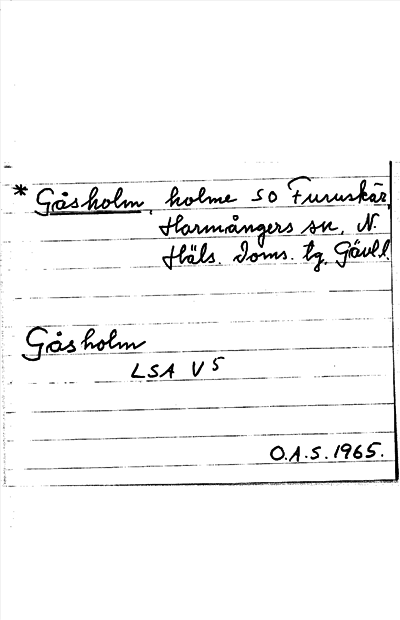 * Gåsholm, holme SO Furuskär,
Harmångers sn, N.
Häls. Doms. tg, Gävl.l.
Gåsholm
LSA V 5
O.A.S. 1965.